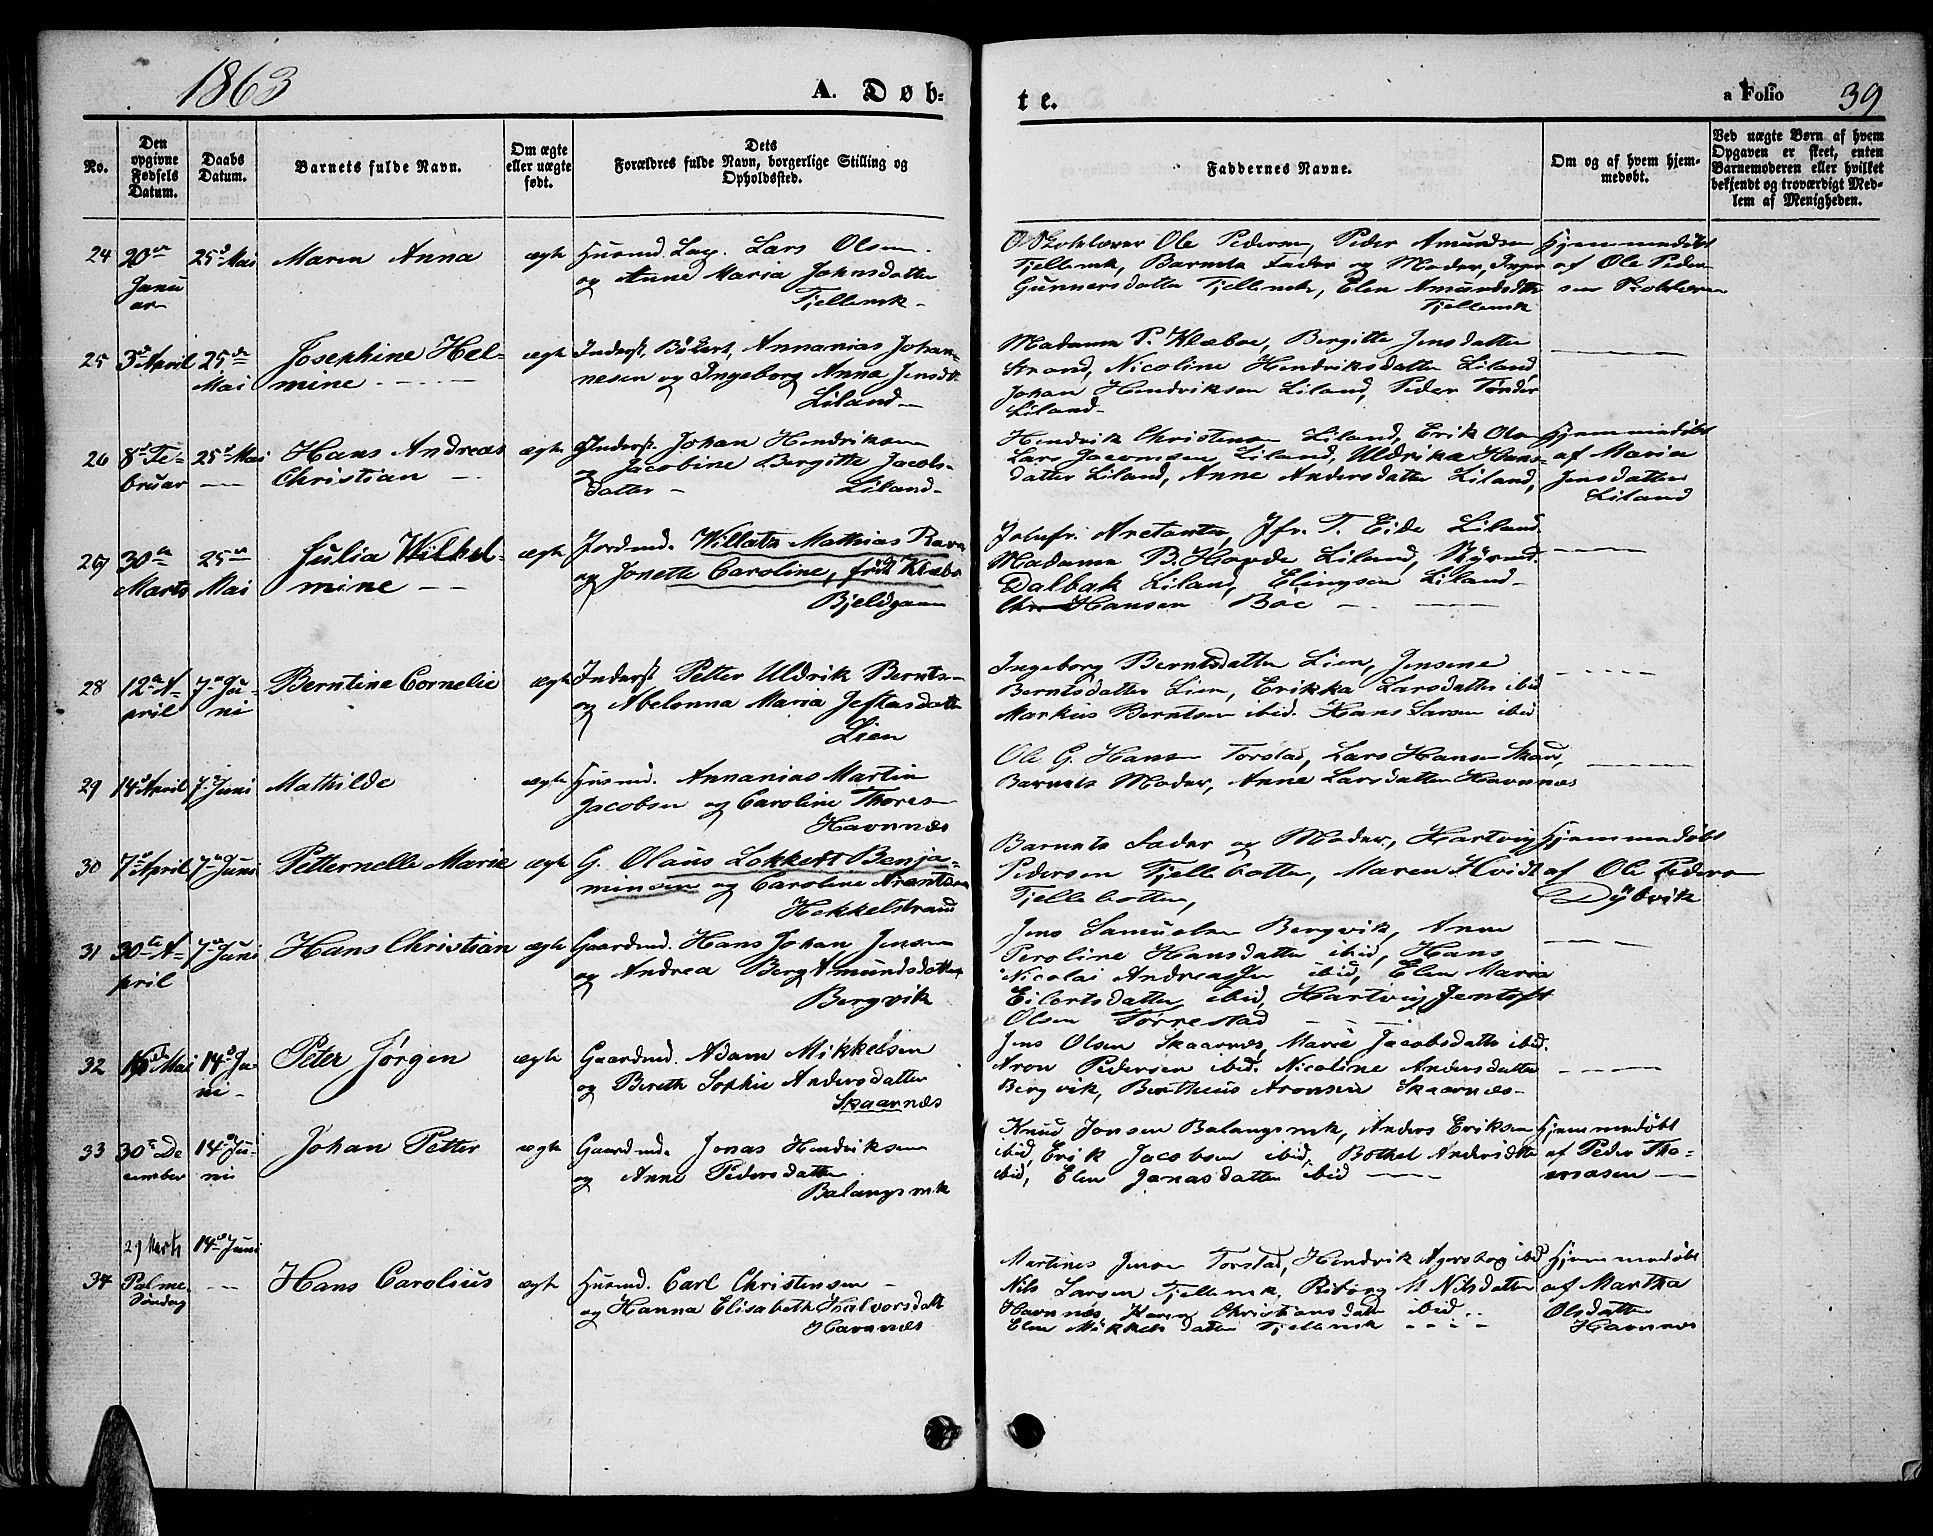 1863
A. Døb-
te.
a Folio 39
No.
Den opgivne Fødsels Datum.
Daabs Datum.
Barnets fulde Navn.
Om ægte eller uægte født.
Dets Forældres fulde Navn, borgerlige Stilling og Opholdssted.
Faddernes Navne.
Om og af hvem hjemmedøbt.
Ved uægte Børn af hvem Opgaven er skeet, enten Barnemoderen eller hvilket bekjendt og troværdigt Medlem af Menigheden.
24 20de Januar 25de Mai Maren Anna ægte Husmd. Lap. Lars Olsen
og Anne Maria Johnsdatter
Fjellemk
Skolelærer Ole Pedersen, Peder Amundsen
Fjellemk, Barnets Fader og Moder, Inger
Gunnersdatter Fjellemk, Elen Amundsdtr
Fjellemk
Hjemmedøbt
af Ole Peder-
sen Skolelærer
25 3de April 25de Mai Josephine Hel-
mine
ægte Inderst, Annanias Johan-
nesen og Ingeborg Anna Jensdtr
Liland
Madame P. Klæboe, Bergitte Jensdatter
Strand, Nicoline Hendriksdatter Liland
Johan Hendriksen Liland, Peder Tønder
Liland
26 8de Februar 25de Mai Hans Andreas
Christian
ægte Inderst. Johan Hendriksen
og Jacobine Bergitte Jacobs-
datter Liland
Hendrik Christensen Liland, Erik Olsen
Lars Liland, Uldrika Hans-
datter Liland, Anne Andersdatter Liland,
Hjemmedøbt
af Maria
Jensdatter
Liland
27 30te Marts 25de Mai Julia Wilhel-
mine
ægte Jordmd. Willats Mathias Ravn
og Jonette Caroline, født Klæbo
Bjeldgam
Jfr. T. Eide Liland
Madame B. Liland,
Dalbak Liland, Elingsen Liland
Hansen Boe
28 12te April 7de Juni Berntine Cornelie ægte Inderst Petter Uldrik Berntsen
og Abelonna Maria Jeftasdatter
Lien
Ingeborg Berntsdatter Lien, Jensine
Berntsdatter Lien, Erikka Larsdatter ibid
Markus Berntsen ibid. Hans Larsen ibid
29 14de April 7de Juni Mathilde ægte Husmd. Annanias Martin
Jacobsen og Caroline Thores
Havnnæs
Ole G. Hansen Torstad, Lars Hansen Skar,
Barnets Moder, Anne Larsdatter Havnnæs
30 7de April 7de Juni Petternelle Marie ægte G. Olaus Lokkert Benja-
minsen og Caroline Arentsen
Hekkelstrand
Barnets Fader og Moder, Hartvig
Pedersen Fjellbotten, Maren Hvidt
Fjellebotten,
Hjemmedøbt
af Ole Pedersen
Dybvik
31 30te April 7de Juni Hans Christian ægte Gaardmd. Hans Johan Jensen
og Andrea Berg Amundsdatter
Bergvik
Jens Samuelsen Bergvik, Anne
Peroline Hansdatter ibid, Hans
Nicolai Andreassen ibid, Elen Maria
Eilertsdatter ibid, Hartvig Jentoft
Olsen Torrestad
32 Mai 14de Juni Peter Jørgen ægte Gaardmd. Adam Mikkelsen
og Bereth Sophie Andersdatter
Skaarnæs
Jens Olsen Skaarnæs, Marie Jacobsdatter ibid.
Aron Pedersen ibid. Nicoline Andersdatter
Bergvik, Bertheus Aronsen Skaarnæs
33 30te December 14de Juni Johan Petter ægte Gaardmd. Jonas Hendriksen
og Anne Pedersdatter
Balangsmk
Knud Jonsen Balangsmk, Anders Eriksen
ibid, Erik Jacobsen ibid, Bothel Andersdtr
ibid, Elen Jonasdatter ibid
Hjemmedøbt
af Peder Tho-
masen
34 29 Marts Palme Søndag 14de Juni Hans Carolius ægte Husmd. Carl Christensen
og Hanna Elisabeth Halvorsdatt
Havnnæs
Martines Jensen Torstad, Hendrik Agerskog ibid
Nils Larsen Fjellemk, Reborg M Nilsdatter
Havnnæs, Karen Christiansdatter ibid
Elen Mikkelsdatter Fjellemk
Hjemmedøbt
af Martha
Olsdatter
Havnnæs